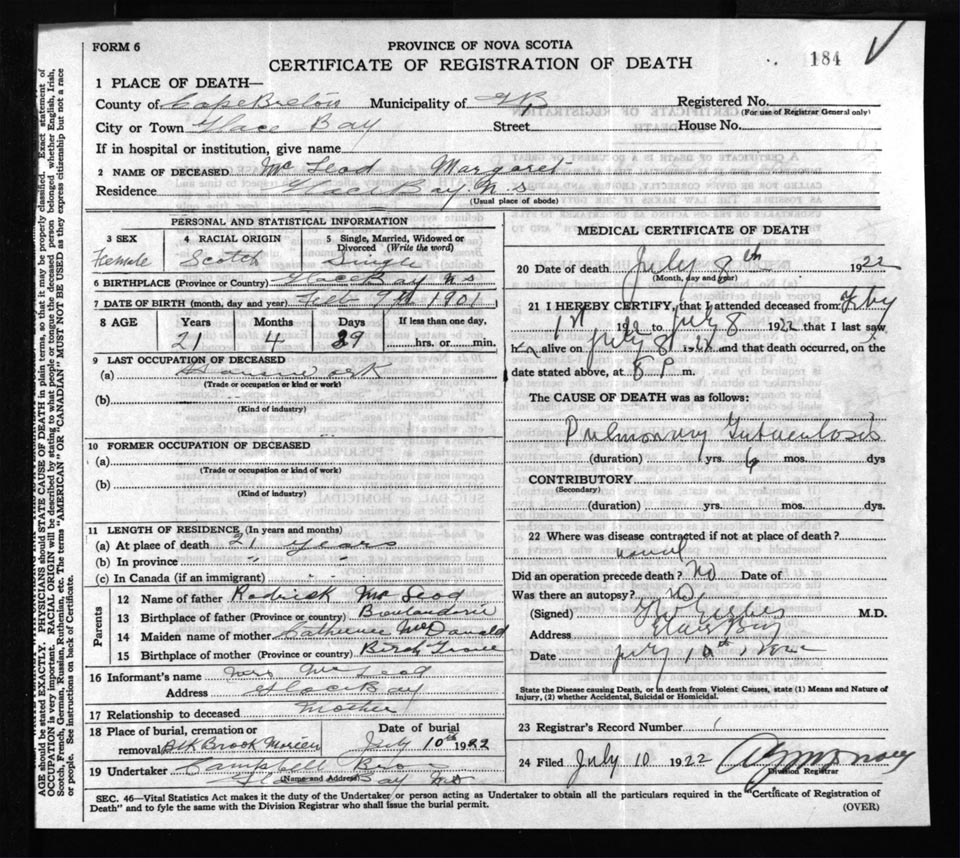 FORM 6
PROVINCE OF NOVA SCOTIA
184
CERTIFICATE OF REGISTRATION OF DEATH
1 PLACE OF DEATH—
County of Cape Breton Municipality of Registered No.
(For use of Registrar General only)
City or Town Glace Bay Street House No.
If in hospital or institution, give name
2 NAME OF DECEASED Mc Leod Margaret
Residence Glace Bay N.S
(Usual place of abode)
PERSONAL AND STATISTICAL INFORMATION
3 SEX 4 RACIAL ORIGIN 5 Single, Married, Widowed or Divorced (Write the word)
Female Scotch Single
6 BIRTHPLACE (Province or Country) Glace Bay N S
7 DATE OF BIRTH (month, day and year) Feb 9th 1901
8 AGE Years Months Days If less than one day,
21 4 29 hrs. or min.
9 LAST OCCUPATION OF DECEASED
(a) Housework
(Trade or occupation or kind or work)
(b)
(Kind of industry)
10 FORMER OCCUPATION OF DECEASED
(a)
(Trade or occupation or kind or work)
(b)
(Kind of industry)
11 LENGTH OF RESIDENCE (In years and months)
(a) At place of death 21 years
(b) In province " "
(c) In Canada (if an immigrant)
Parents
12 Name of father Rodrick Mc Leod
13 Birthplace of father (Province or country)
14 Maiden name of mother Catherine McDonald
15 Birthplace of mother (Province or country) Birch Grove
16 Informant's name Mrs Mc Leod
Address Glace Bay
17 Relationship to deceased Mother
18 Place of burial, cremation or removal Blk Brook Morien
Date of burial July 10th 1922
19 Undertaker Campbell Bro
(Name and Address) Glace Bay N S
MEDICAL CERTIFICATE OF DEATH
20 Date of death July 8th 1922
(Month, day and year)
21 I HEREBY CERTIFY, that I attended deceased from Feby
1st 192 to July 8 1922 that I last saw
h er alive on July 8 1922 and that death occurred, on the
date stated above, at 8 P m.
The CAUSE OF DEATH was as follows:
Pulmonary Tuberculosis
(duration) yrs. 6 mos. dys
CONTRIBUTORY
(Secondary)
(duration) yrs. mos. dys
22 Where was disease contracted if not at place of death?
Did an operation precede death? No Date of
Was there an autopsy? No
(Signed) M.D.
Address Glace Bay
Date July 10th
State the Disease causing Death, or in death from Violent Causes, state (1) Means and Nature of
Injury, (2) whether Accidental, Suicidal or Homicidal.
23 Registrar's Record Number
24 Filed July 10 1922
Division Registrar
SEC. 46—Vital Statistics Act makes it the duty of the Undertaker or person acting as Undertaker to obtain all the particulars required in the "Certificate of Registration of
Death" and to fyle the same with the Division Registrar who shall issue the burial permit.
(OVER)
AGE should be stated EXACTLY. PHYSICIANS should STATE CAUSE OF DEATH in plain terms, so that it may be properly classified. Exact statement of
OCCUPATION is very important. RACIAL ORIGIN will be described by stating to what people or tongue the deceased person belonged whether English, Irish,
Scotch, French, German, Russian, Ruthenian, etc. The terms "AMERICAN" OR "CANADIAN" MUST NOT BE USED as they express citizenship but not a race
or people. See instructions on back of Certificate.